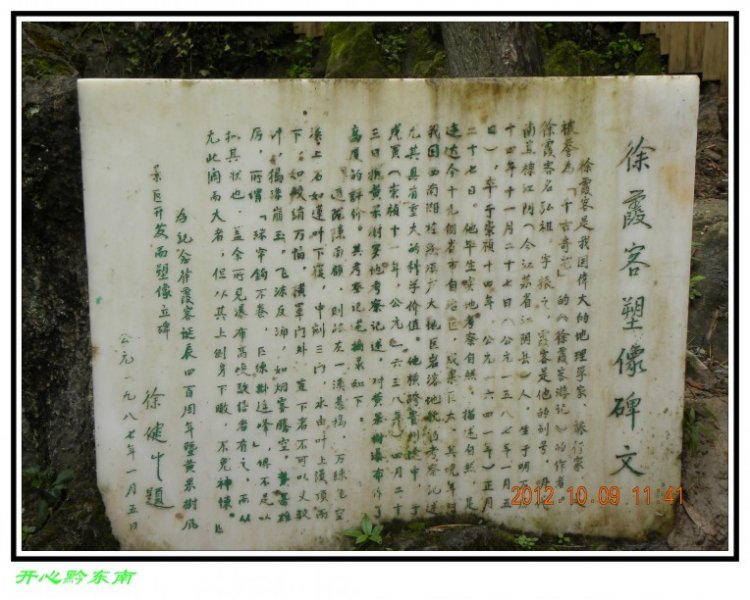 徐霞客塑像碑文
徐霞客是我国伟大的地理学家、旅行家
被誉为「千古奇书」的《徐霞客游记》的作者。
徐霞客名弘祖，字振之，霞客是他的别号，
南直隶江阴（今江苏省江阴县）人，生于明万
十四年十一月二十七日（公元一五八七年一月五
日），卒于崇祯十四年（公元一六四一年）正月
二十七日。他毕生实地考察自然，描述自然，足
迹达今十九个省市自治区，成果巨大，其晚年对
我国西南湘桂黔滇广大地区岩溶地貌的考察记述
尤其具有重大的科学价值。他横跨贵州途中，于
戊寅（崇祯十一年，公元一六三八年）四月二十
三日抵黄果树实地考察记述，对黄果树瀑布作了
高度的评价。其考察记述摘录如下。
透陇隙南顾，则路左一溪悬捣，万练飞空
溪上石如莲叶下覆，中剜三门，水由叶上漫顶而
下，如鲛绡万幅，横罩门外，直下者不可以丈数
计，捣珠崩玉，飞沫反涌，如烟雾腾空，势甚雄
厉，所谓「珠帘钩不卷，匹练挂遥峰」俱不足以
拟其状也。盖余所见瀑布高峻数倍者有之，而从
无此阔而大者，但从其上侧身下瞰，不免神悚。
为纪念徐霞客诞辰四百周年暨黄果树风
景区开发而塑像立碑
徐健中题
公元一九八七年一月五日
2012.10.09 11:41
开心黔东南